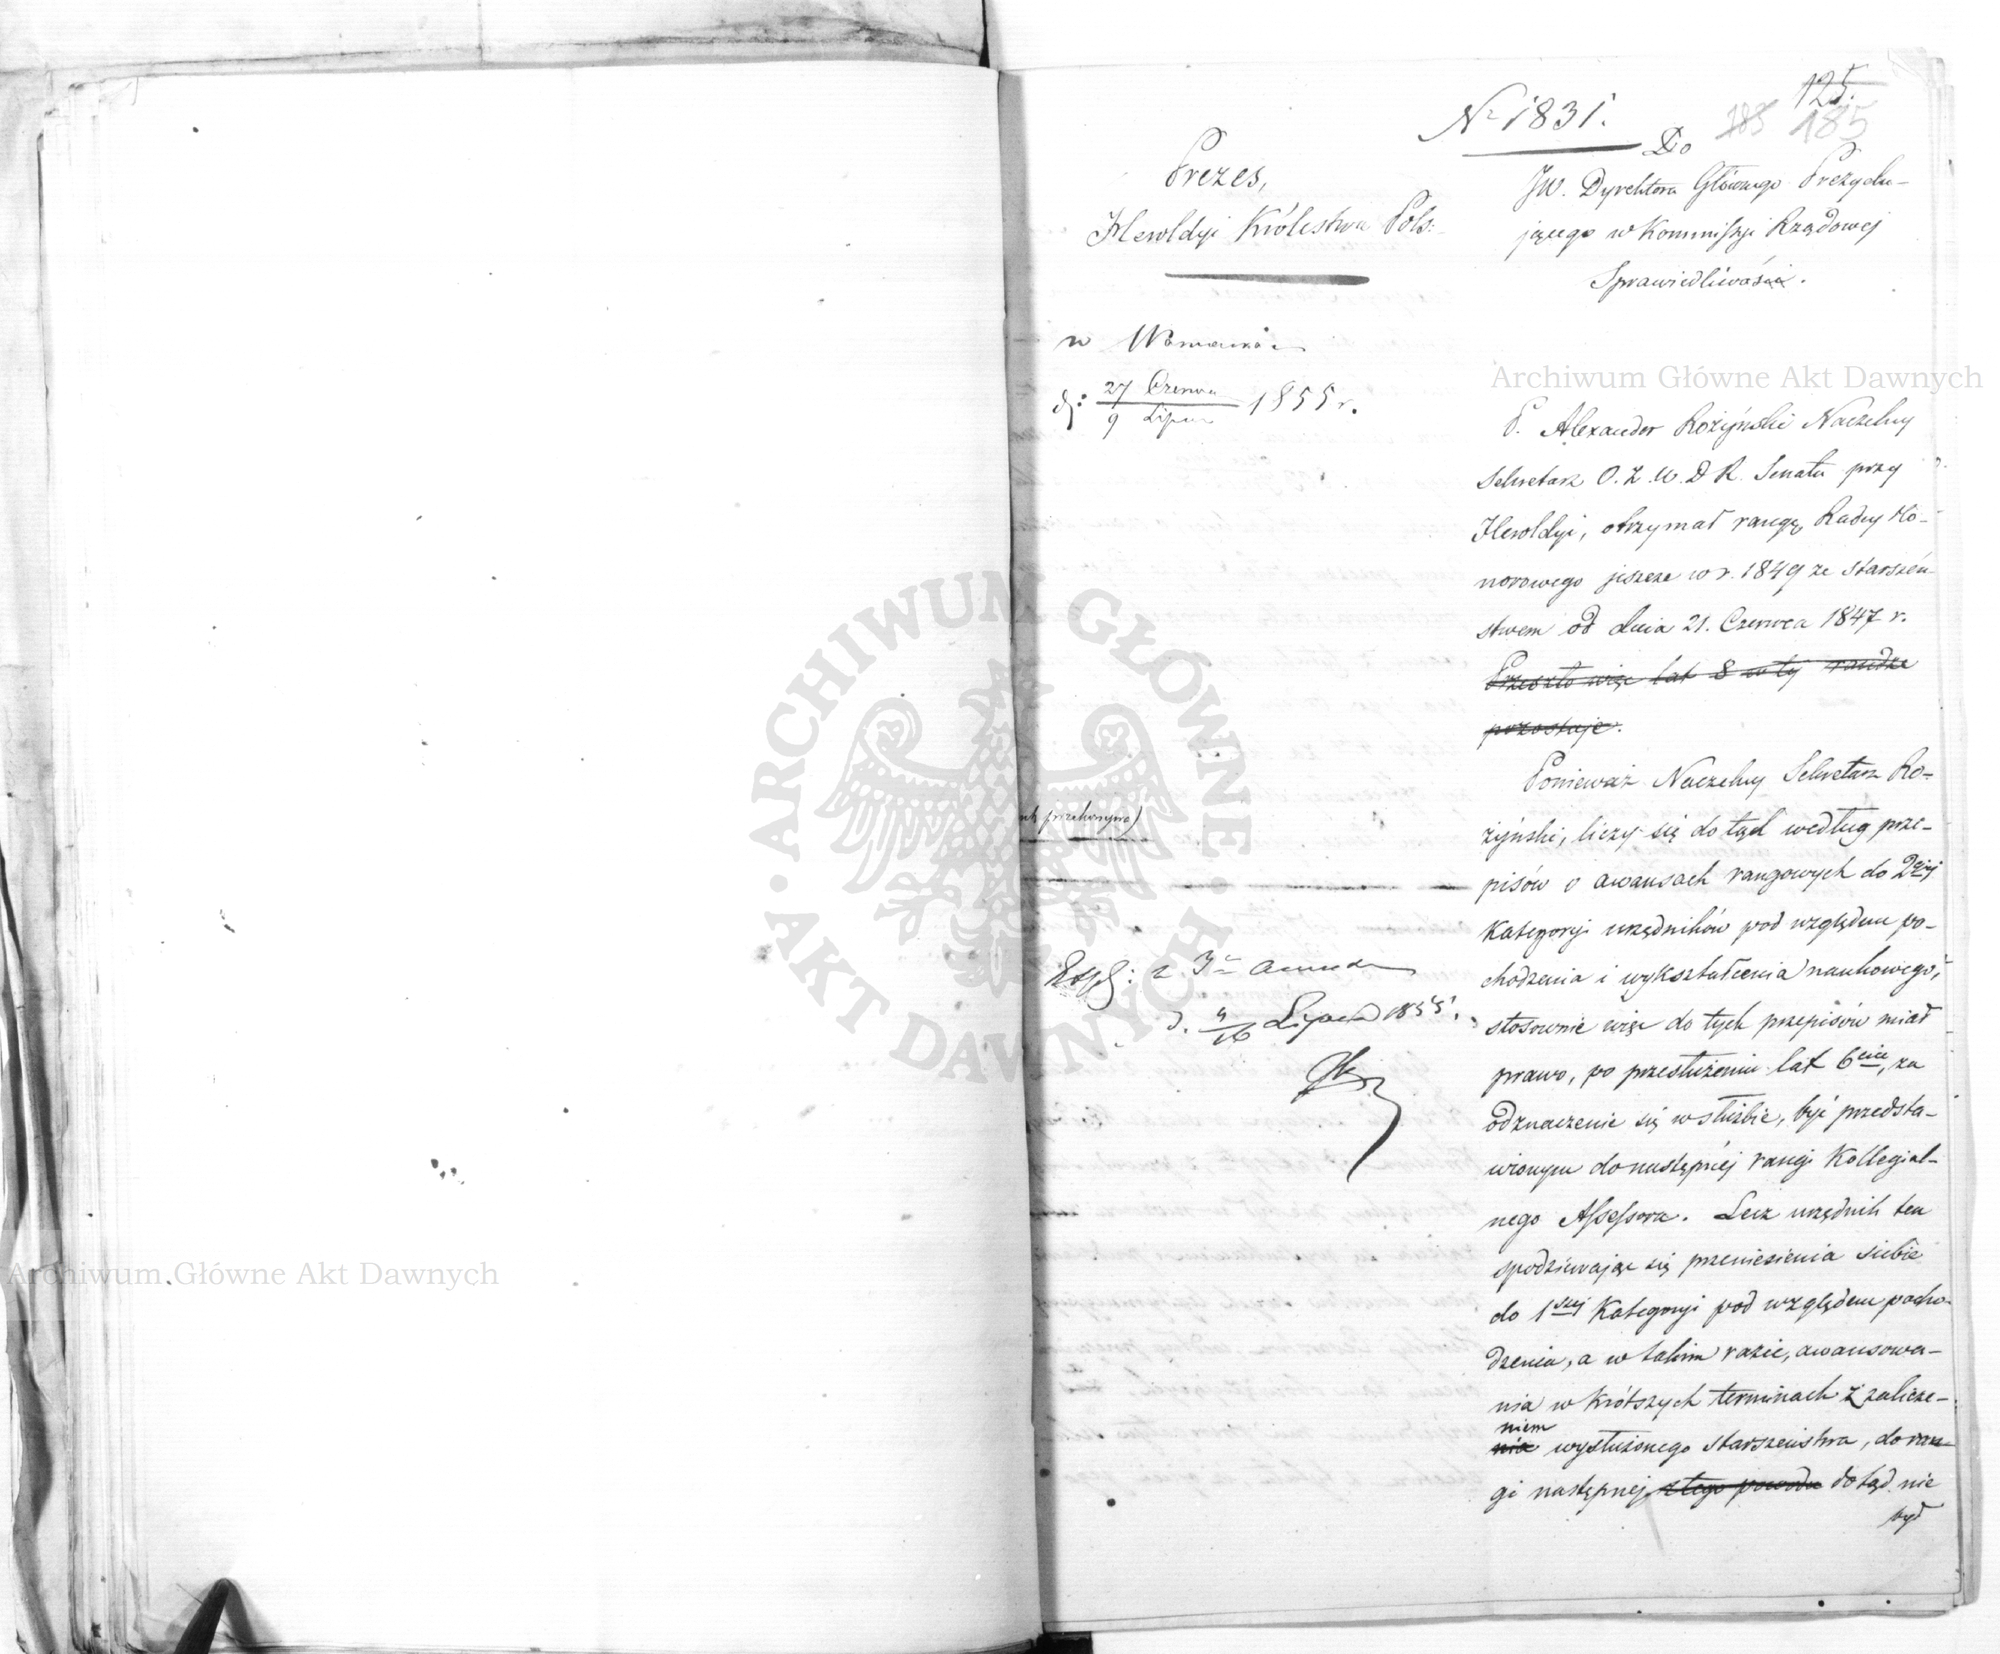 125.
185 185
Nr 1831.
Prezes,
Heroldyi Królestwa Pols:
w Warszawie
d: 27 Czerwca / 9 Lipca 1855 r.
Do
JW. Dyrektora Głównego Prezydu-
jącego w Kommissyi Rządowej
Sprawiedliwości.
P. Alexander Rożyński Naczelny
Sekretarz O. Z. W. D R. Senatu przy
Heroldyi, otrzymał rangę Radcy Ho-
norowego jeszcze w r. 1849 ze starszeń-
stwem od dnia 21. Czerwca 1847 r.
Przeszło więc lat 8 w tej randze
pozostaje.
Ponieważ Naczelny Sekretarz Ro-
żyński, liczy się dotąd według prze-
pisów o awansach rangowych do 2giej
Kategoryi urzędników pod względem po-
chodzenia i wykształcenia naukowego,
stosownie więc do tych przepisów miał
prawo, po przesłużeniu lat 6ciu, za
odznaczenie się w służbie, być przedsta-
wionym do następnéj rangi Kollegial-
nego Assessora. Lecz urzędnik ten
spodziewając się przeniesienia siebie
do 1szej Kategoryi pod względem pocho-
dzenia, a w takim razie, awansowa-
nia w krótszych terminach z zalicze-
niem
nia wysłużonego starszeństwa, do ran-
gi następnej z tego powodu dotąd nie
był
Exp: z 3
d. 4/16 Lipca 1855.
Archiwum Główne Akt Dawnych
Archiwum Główne Akt Dawnych
ARCHIWUM GŁÓWNE AKT DAWNYCH